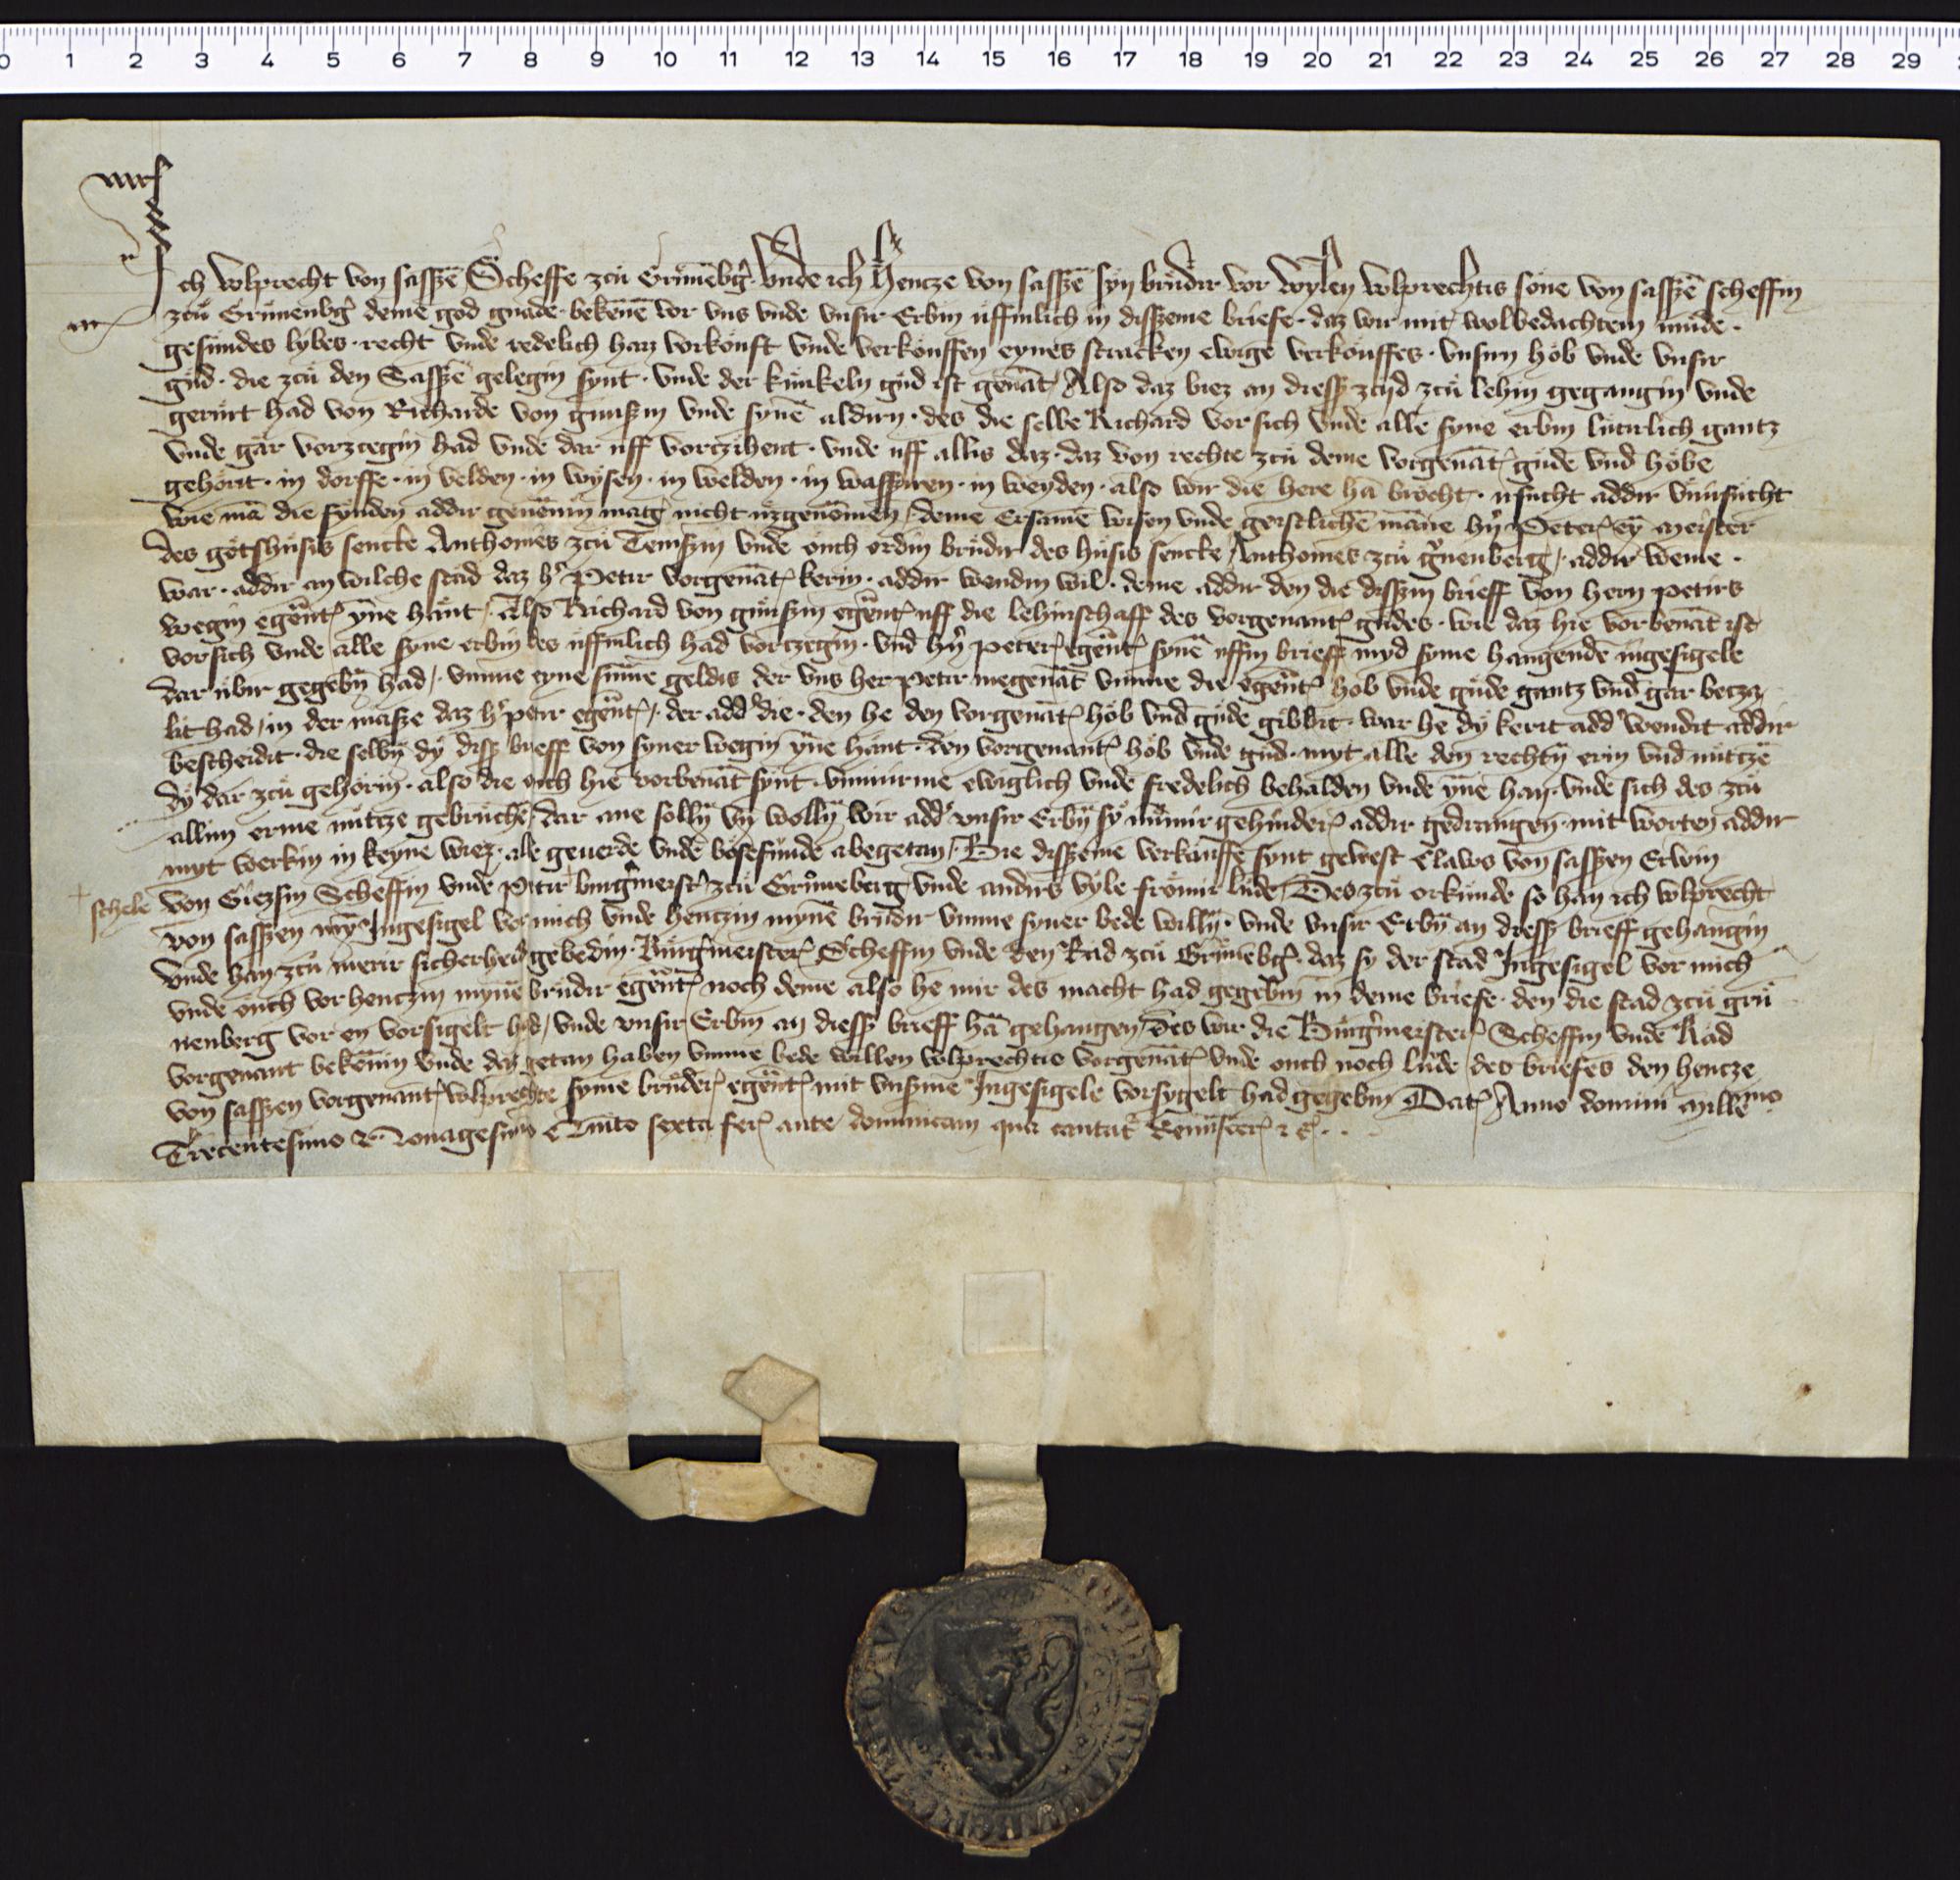 0 1 2 3 4 5 6 7 8 9 10 11 12 13 14 15 16 17 18 19 20 21 22 23 24 25 26 27 28 29
Ich Wolprecht von sassẽ Scheffe zců Grůnẽbg̃ · Vnde ich Hencze von sassẽ syn brůdir vor Wylen Wolprechtis sone von sassẽ scheffin
zců Grůnenbg̃ deme god gnade · bekenẽ vor vns vnde vnsir Erbin uffinlich in disseme briefe · daz wir mit wolbedachtem můde ·
gesundes lybes · recht vnde redelich han vorkouft vnde verkouffen eynes stracken ewige verkouffes · vnsirn hob vnde vnsir
gůd · die zců den Sassẽ gelegin synt · vnde der kunkeln gůd ist genãt Also daz biez an diesse zcijd zců lehin gegangin vnde
gerůrt had von Richarde von gunssin vnde synẽ aldirn · des die selbe Richard vor sich vnde alle syne erbin luterlich gantz
vnde gar vorzcegin had vnde dar uff vortzihent · vnde uff allis daz · daz von rechte zců deme vorgenãt gůde vnd hobe
gehorit · in dorffe · in velden · in wysen · in welden · in wassiren · in weyden · also wir die here hã brocht · irsucht addir vnirsucht
wie mã die fynden addir genennen mag nicht uzgenomen / deme Ersamẽ wisen vnde geistlichẽ mãne hern Peter ey meister
des gotshusis sencte Anthonies zců Gruntzin vnde ouch ordin brůdir des husis sencte Anthonies zců grunenberg / addir weme ·
war · addir an wilche stad daz her Petir vorgenãt kerin · addir wendin wil · deme addir den die dissin brieff von hern petirs
wegin egẽnt yne hant / Also Richard von gunssin egẽnt uff die lehinschaff des vorgenant gudes · wie daz hie vorbenãt ist
vor sich vnde alle syne erbin des uffinlich had vortzegin · vnd hern peter egẽnt synẽ uffin brieff myd syme hangendẽ ingesigele
dar ubir gegebin had / vmme eyne sũme geldis der vns her petir megenãt vmme die egẽnt hob vnde gůde gantz vnd gar betza
lit had / in der masse daz her petir egẽnt / der addir die · den he den vorgenãt hob vnd gůde gibbit · war he dy kerit addir wendit addir
bescheidit · die selbin dy diss brieff von syner wegin yne hant · den vorgenant hob vnde gůd · myt alle den rechtin erin vnd nutzẽ
dy dar zců gehorin · also die ouch hie vorbenãt synt · vmmirme ewiglich vnde fredelich behalden vnde yne han · vnde sich des zců
allim erme nůtze gebruchẽ / dar ane sollin vn wollin wir addir vnsir Erbin sy nummir gehindern addir gedrangen · mit worten addir
myt werkin in keyne wiez · alle geuerde vnde bosefunde abegetan / Bie disseme verkauffe synt gewest Clawes von sassen Erwin
schele
von Giezsin Scheffin vnde Petir burgmeister zců Grůneberg vnde andirs vyle fromir lude / Des zců orkunde so han ich wolprecht
von sassen myn Ingesigel vor mich vnde hentzin mynẽ brůdir vmme syner bede willin · vnde vnsir Erbin an diess brieff gehangin
vnde han zců merir sicherheid gebedin · Burgmeister Scheffin vnde den Rad zců Grůnẽbg̃ · daz sy der stad Ingesigel vor mich
vnde ouch vor hentzin mynẽ brůdir egẽnt noch deme also he mir des macht had gegebin in deme briefe · den die stad zců grů
nenberg vor en vorsigelt had / vnde vnsir Erbin an diess brieff hã gehangen / des wir die Burgmeister Scheffin vnde Rad
vorgenant bekennin vnde daz getan haben vmme bede willen wolprechtis vorgenãt vnde ouch noch lude des briefes den hencze
von sassen vorgenant wolprechte syme brůder egẽnt mit vnsirme Ingesigele vorsygelt had gegebin Dat Anno domini Millemo
Trecentesimo Nonagesimo Quinto sexta fer ante dominicam qua cantat Reminiscer